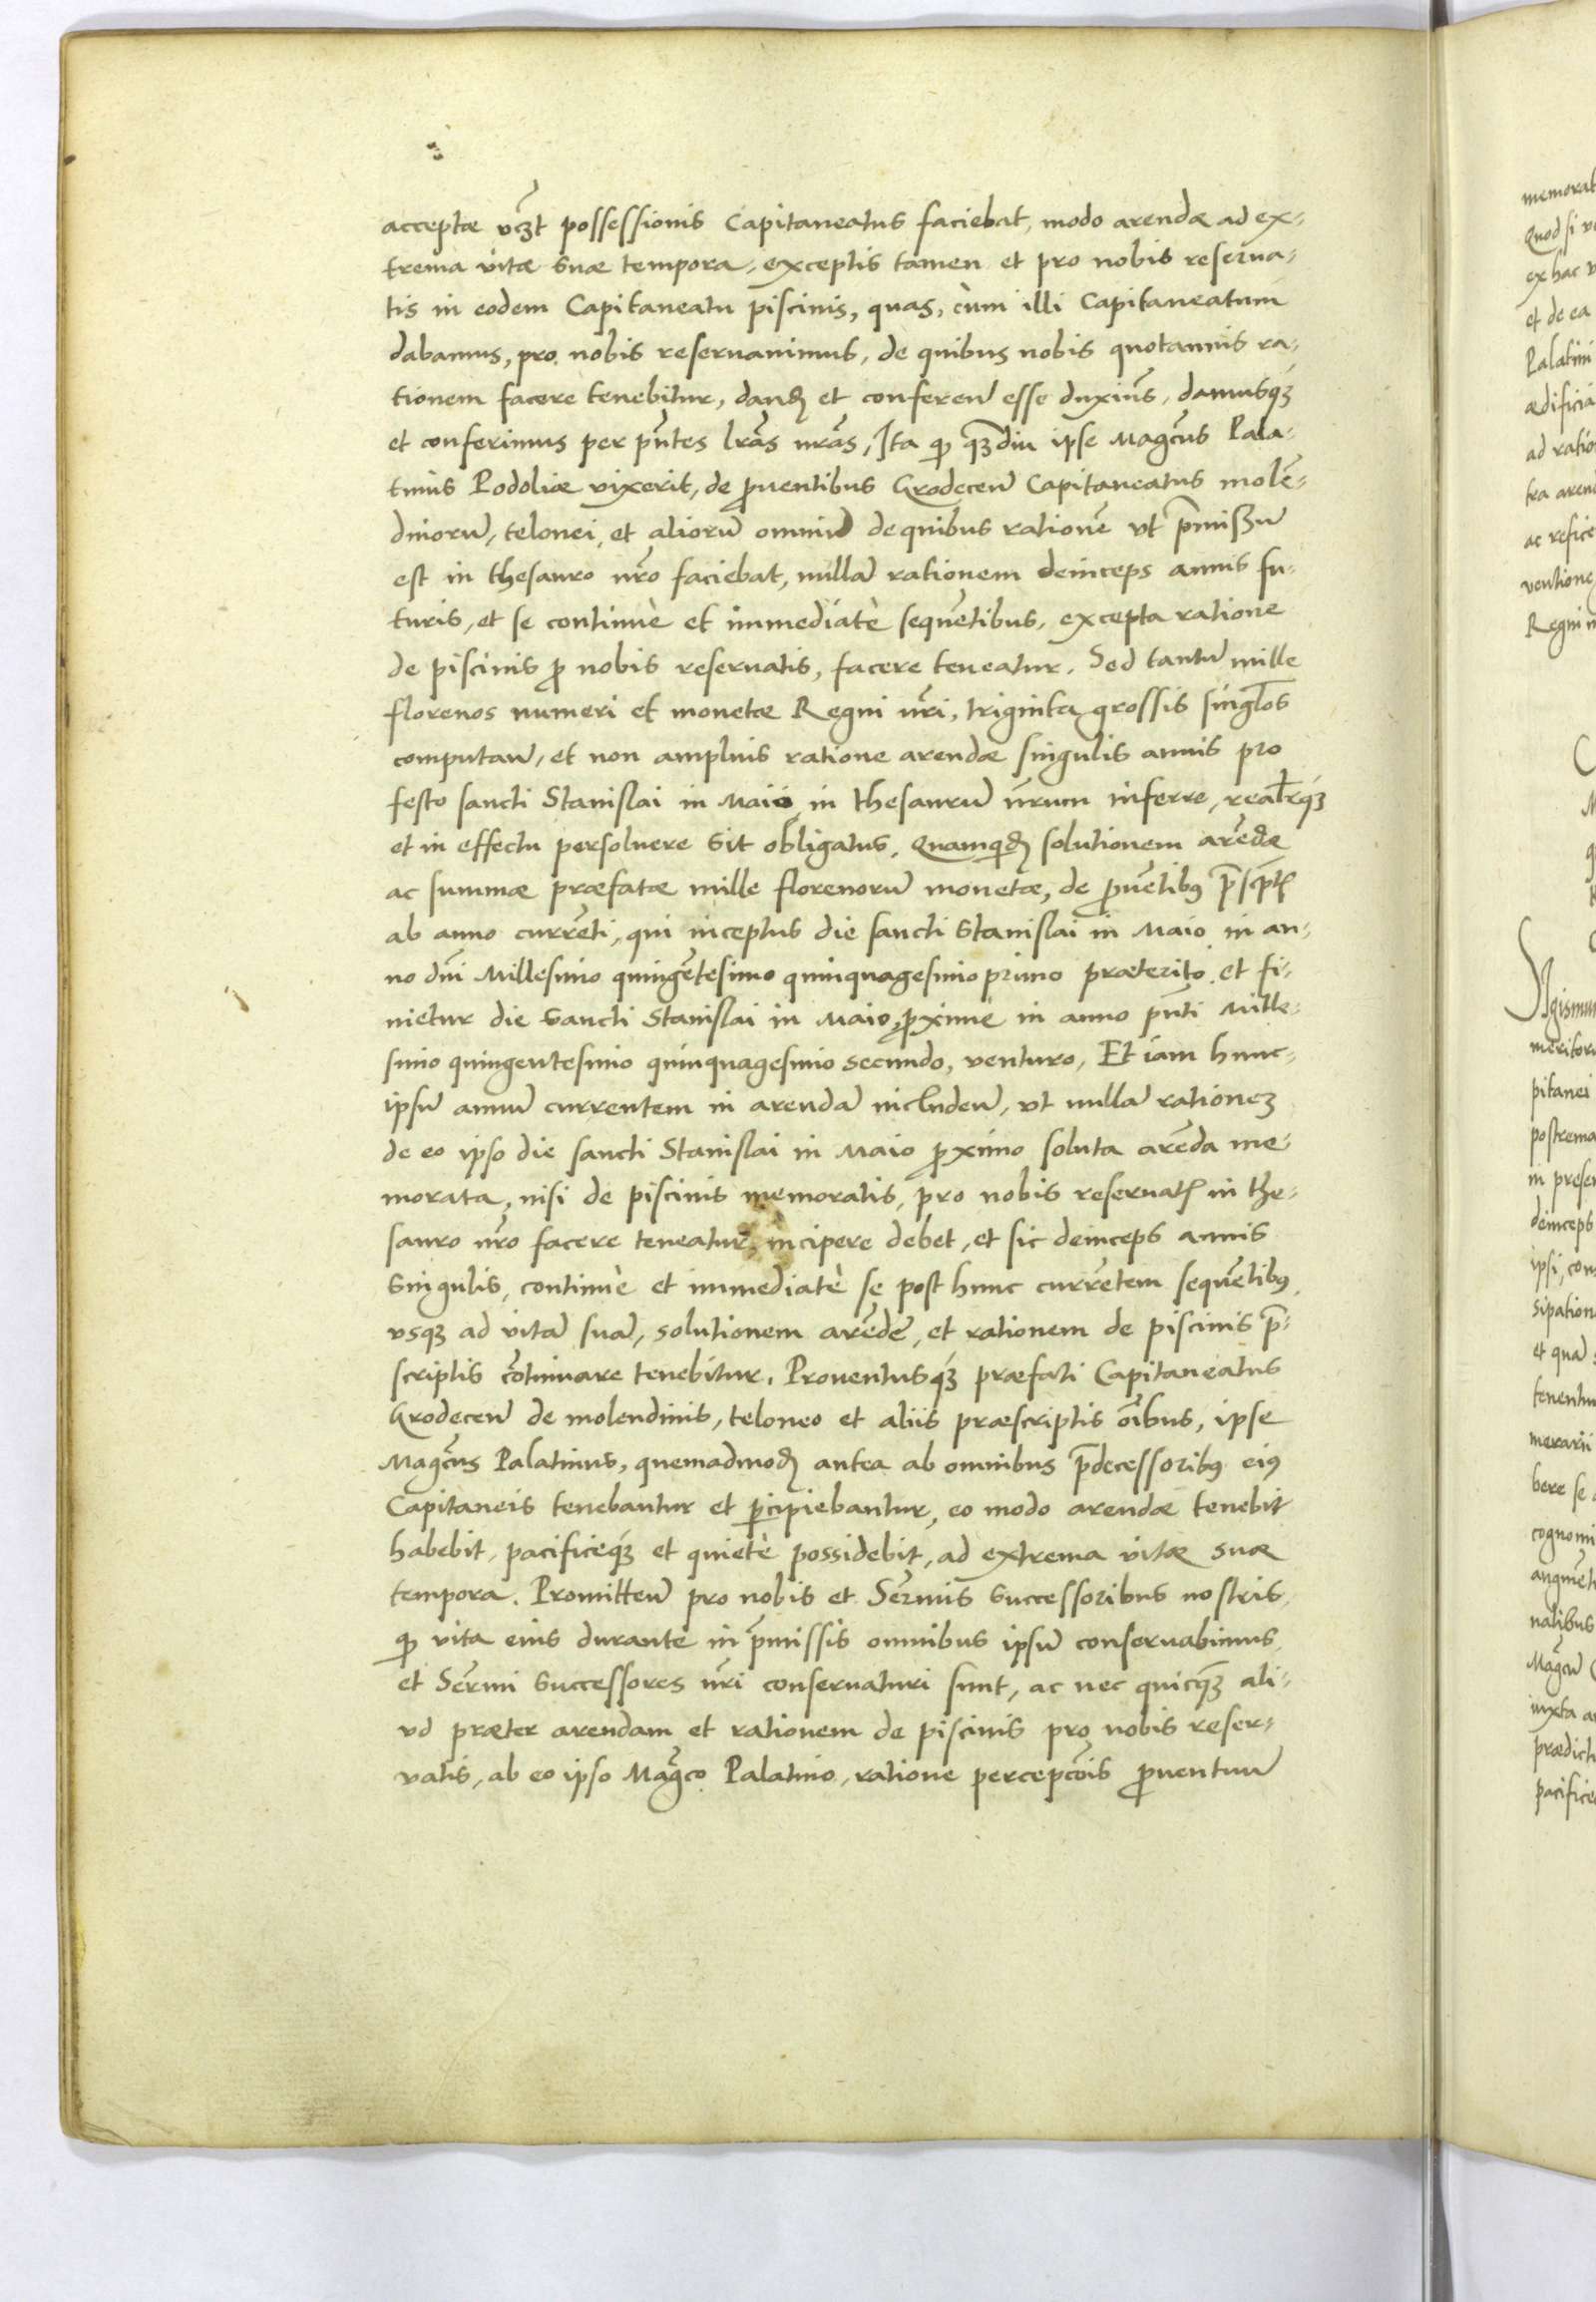 acceptæ vcꝫt possessionis Capitaneatus faciebat, modo arendæ ad ex-
trema vitæ suæ tempora, exceptis tamen et pro nobis reserua-
tis in eodem Capitaneatu piscinis, quas, cùm illi Capitaneatum
dabamus, pro nobis reseruauimus, de quibus nobis quotannis ra-
tionem facere tenebitur, dand et conferen̄ esse duximꝰ, damusqꝫ
et conferimus per pn̄tes lr̄as nr̄as, Ita qꝫ qꝫdiu ipse Magcūs Pala-
tinus Podoliæ vixerit, de ꝓuentibus Grodecen̄ Capitaneatus molē-
dinorū, telonei, et aliorū omniū de quibus rationē vt p̄missū
est in thesauro nr̄o faciebat, nullā rationem deinceps annis fu-
turis, et se continuè et immediatè sequētibus, excepta ratione
de piscinis ꝓ nobis reseruatis, facere teneatur. Sed tantū mille
florenos numeri et monetæ Regni nr̄i, triginta grossis singl̄os
computan̄, et non amplius ratione arendæ singulis annis pro
festo sancti Stanislai in Maio in thesaurū nr̄um inferre, realr̄qꝫ
et in effectu persoluere sit obligatus. Quamquid solutionem arēdæ
ac summæ præfatæ mille florenorū monetæ, de ꝓuētibꝰ p̄scptꝭ
ab anno currēti, qui inceptus die sancti Stanislai in Maio in an-
no dn̄i Millesimo quingētesimo quinquagesimo primo præterito et fi-
nietur die Sancti Stanislai in Maio ꝓxime in anno pn̄ti Mille-
simo quingentesimo quinquagesimo secundo, venturo, Et iam hunc
ipsū annū currentem in arendā includen̄, vt nullā rationeꝫ
de eo ipso die sancti Stanislai in Maio ꝓximo soluta arēda me-
morata, nisi de piscinis memoratis, pro nobis reseruatꝭ in the-
sauro nr̄o facere teneatur, incipere debet, et sic deinceps annis
singulis, continuè et immediatè se post hunc currētem sequētibꝰ
vsqꝫ ad vitā suā, solutionem arēdę, et rationem de piscinis p̄-
scriptis cōtinuare tenebitur. Prouentusqꝫ præfati Capitaneatus
Grodecen̄ de molendinis, teloneo et aliis præscriptis oībus, ipse
Magcūs Palatinus, quemadmod antea ab omnibus p̄decessoribꝰ eiꝰ
Capitaneis tenebantur et ꝑcipiebantur, eo modo arendæ tenebit
habebit, pacificeqꝫ et quietè possidebit, ad extrema vitæ suæ
tempora. Promitten̄ pro nobis et Serm̄is Successoribus nostris,
qꝫ vita eius durante in p̄missis omnibus ipsū conseruabimus
et Serm̄i Successores nr̄i conseruaturi sunt, ac nec quicqꝫ ali-
ud præter arendam et rationem de piscinis pro nobis reser-
vatis, ab eo ipso Magc̄o Palatino, ratione percepcōis ꝓuentuū